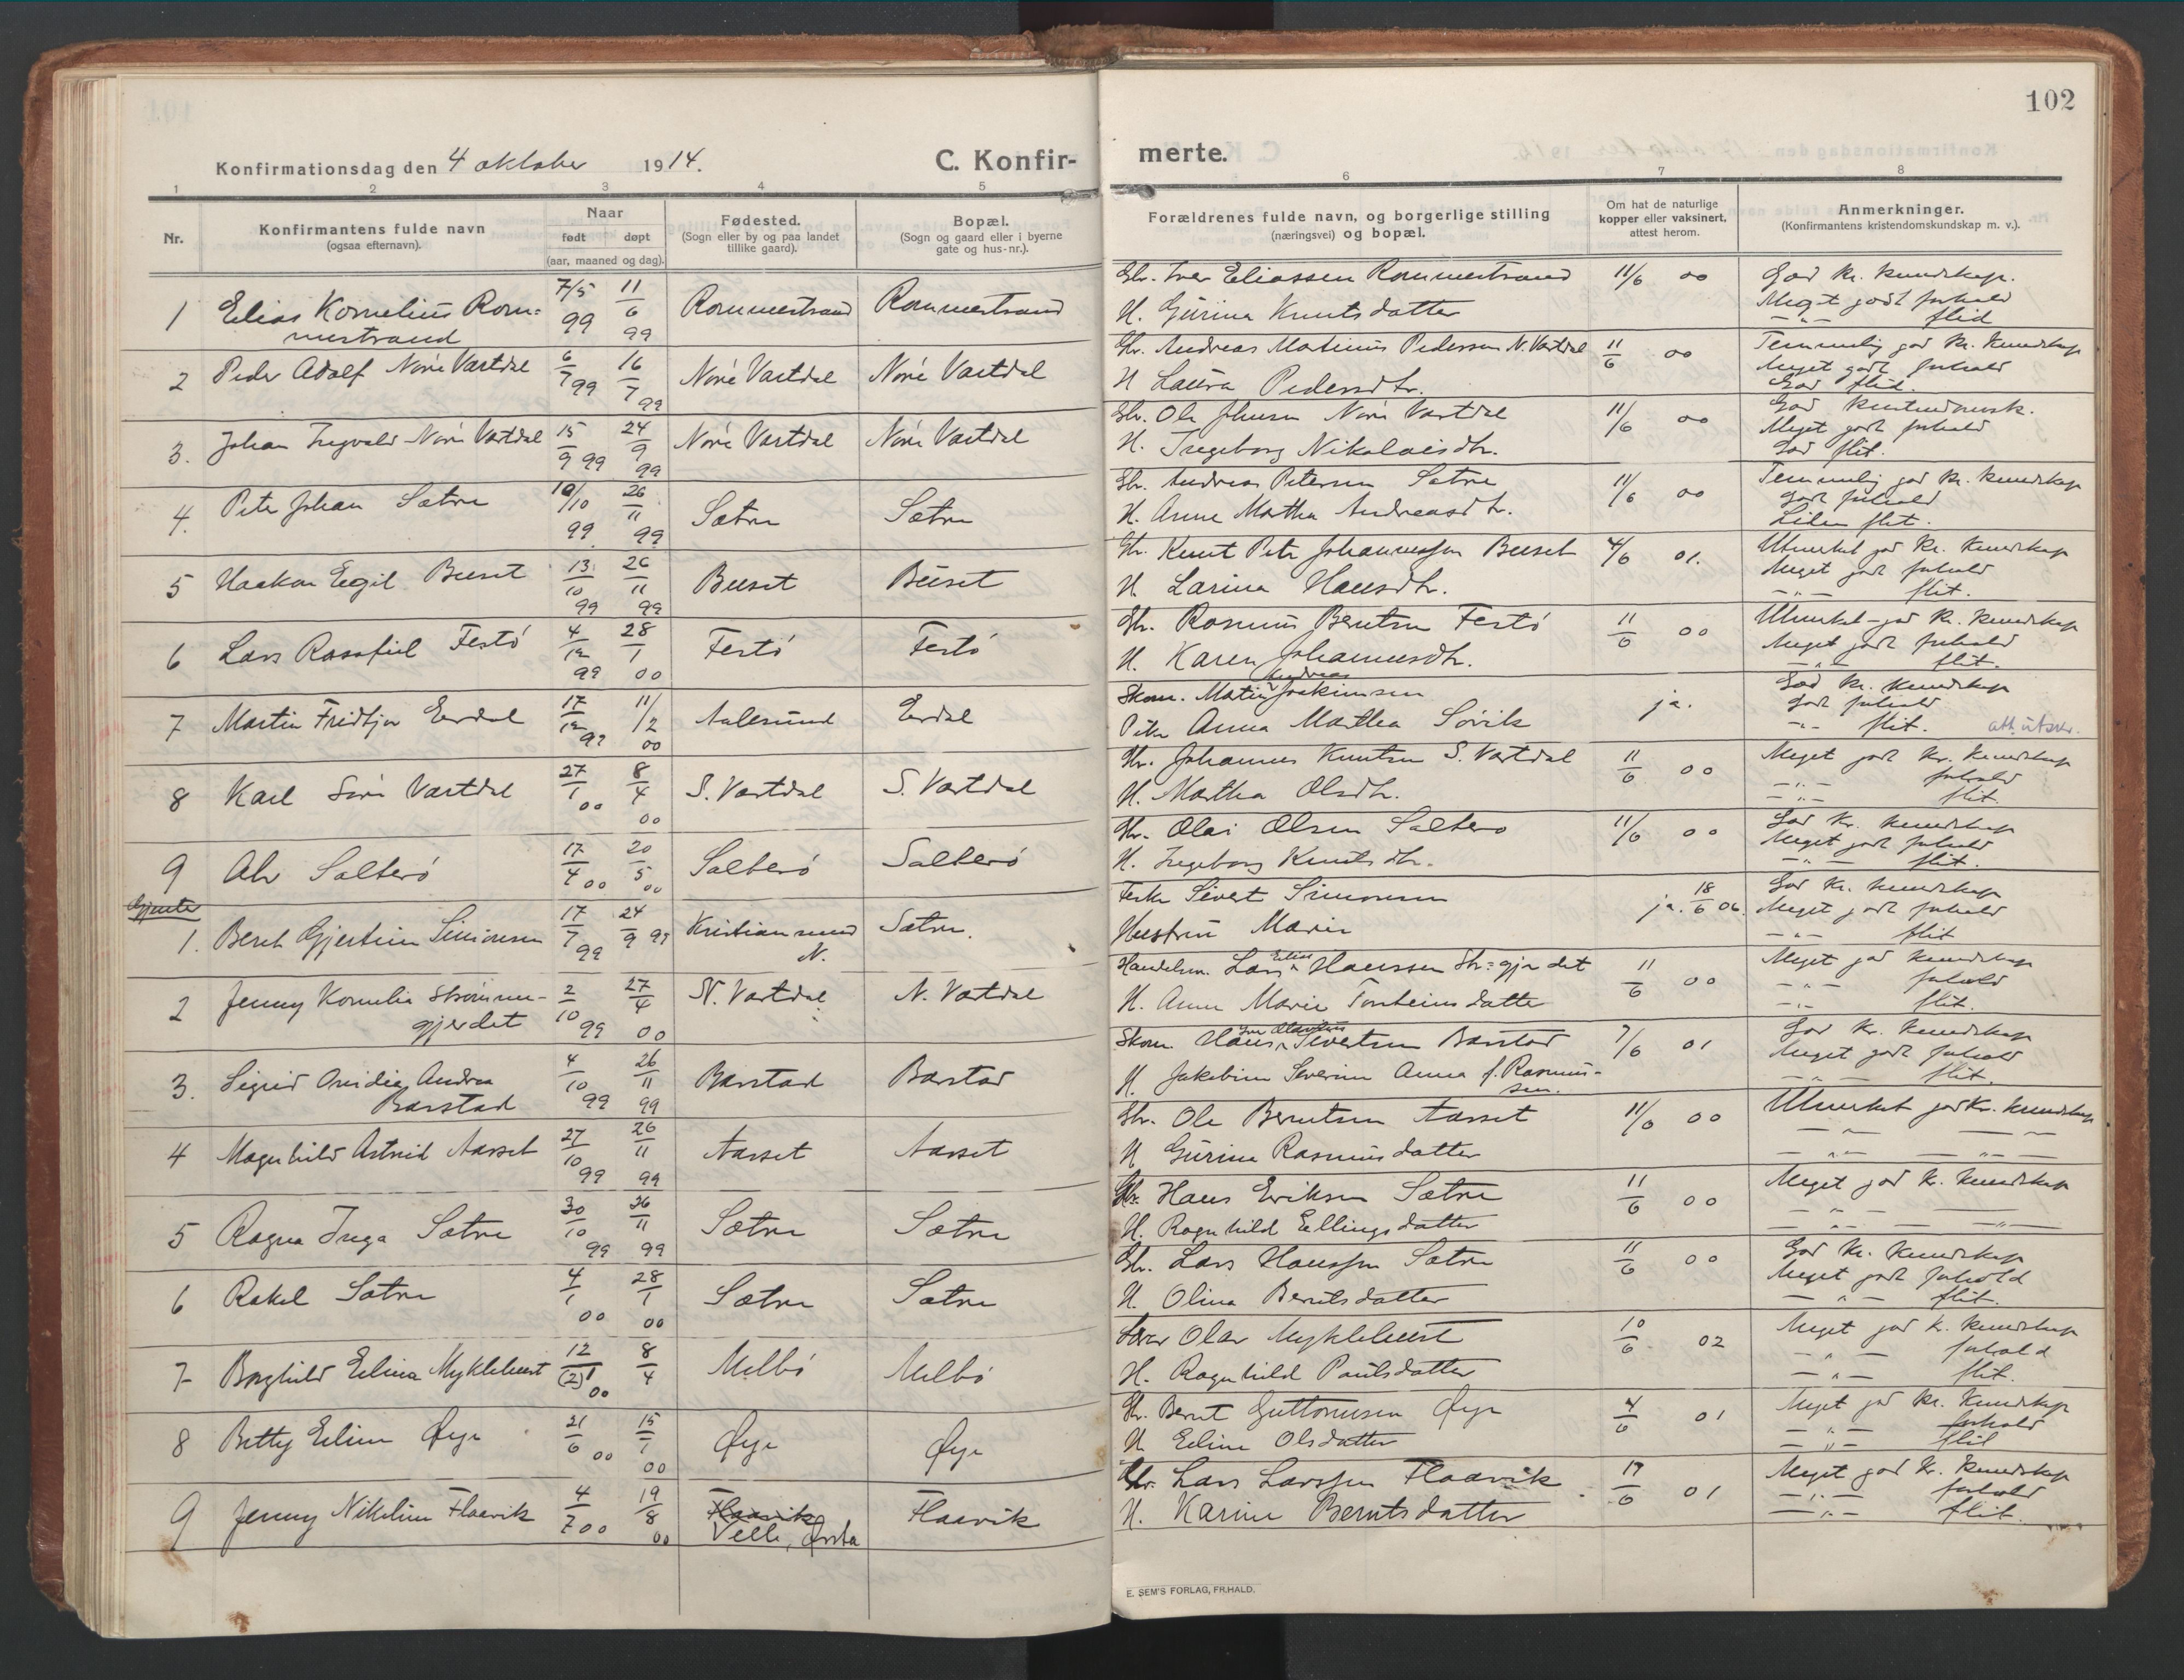 102
Konfirmationsdag den 4 oktober 1914.
C. Konfir-
merte.
1 2 3 4 5 6 7 8
Nr.
Konfirmantens fulde navn
(ogsaa efternavn).
Naar
født døpt
(aar, maaned og dag).
Fødested.
(Sogn eller by og paa landet
tillike gaard).
Bopæl.
(Sogn og gaard eller i byerne
gate og hus-nr.).
Forældrenes fulde navn, og borgerlige stilling
(næringsvei) og bopæl.
Om hat de naturlige
kopper eller vaksinert,
attest herom.
Anmerkninger.
(Konfirmantens kristendomskundskap m. v.).
1 Elias Kornelius Rom=
mestrand
7/5 99 11/6 99 Rommestrand Rommestrand
Gbr. Iver Eliassen Rommestrand 11/6 00 God kr. kundskap.
H. Gurina Knutsdatter Meget godt forhold
—"— flid
2 Peder Adolf Nore Vartdal 6/7 99 16/7 99 Nore Vartdal Nore Vartdal
Gbr. Andreas Martinus Pedersen N. Vartdal 11/6 00 Temmelig god kr. kundskap
H Laura Pedersdtr. Meget godt forhold
God flid.
3. Johan Ingvald Nore Vartdal 15/9 99 24/9 99 Nore Vartdal Nore Vartdal
Gbr. Ole Johnsen Nore Vartdal 11/6 00 God kristendomsk.
H. Ingeborg Nikolaisdtr. Meget godt forhold
God flit.
4. Peter Johan Sætre 10/10 99 26/11 99 Sætre Sætre
Gbr. Andreas Petersen Sætre 11/6 00 Temmelig god kr. kundskap
H. Anne Martha Andreasdtr. godt forhold
Liden flit.
5 Haakon Eugil Buset 13/10 99 26/11 99 Buset Buset
Gbr. Knut Peter Johannessen Buset 4/6 01. Utmerket god kr. kundskap
H Larina Hansdtr. Meget godt forhold
—"— flit.
6 Lars Rasafiel Festö 4/12 99 28/1 00 Festö Festö
Gbr. Rasmus Berntsen Festö 11/6 00 Utmerket god kr. kundskap
H. Karen Johannesdtr. Meget godt forhold
—"— flit.
7 Martin Fridtjov Eerdal 17/12 99 11/2 00 Aalesund Eerdal
Andreas
Skom. Martin Joakimsen ja. God kr. kundskap
Pike Anna Martha Sövik godt forhold
—"— flit. att. utskr.
8 Karl Söre Vartdal 27/1 00 8/4 00 S. Vartdal S. Vartdal
Gbr. Johannes Knutsen S. Vartdal 11/6 00 Meget god kr. kundskap
H. Martha Olsdtr. —"— forhold
—"— flit.
9 Alv Salterö 17/4 00 20/5 00 Salterö Salterö
Gbr. Olai Olsen Salterö 11/6 00 God kr. kundskap
H. Ingeborg Knutsdtr. Meget godt forhold
—"— flit.
Gjenter
1. Beret Gjertine Simonsen 17/7 99 24/9 99 Kristiansund N. Sætre.
Fisker Sivert Simonsen ja. 18/6 06. God kr. kundskap
Hustru Marie Meget godt forhold
—"— flit
2 Jenny Kornelia Strömme-
gjerdet
2/10 99 27/4 00 N. Vartdal N. Vartdal
Handelsm. Lars Elias Hanssen Str=gjerdet 11/6 00 Meget god kundskap
H. Anne Marie Torsteinsdatter —"— forhold
—"— flit.
3. Sigrid Ovidia Andrea
Barstad
4/10 99 26/11 99 Barstad Barstad
Skom. Hans Sivertsen Barstad 7/6 01 God kr. kundskap
H. Jakobine Severine Anna f. Rasmus-
sen. Meget godt forhold
—"— flit.
4 Magnhild Astrid Aasset 27/10 99 26/11 99 Aasset Aasset
Gbr. Ole Berntsen Aasset 11/6 00 Utmerket god kr. kundskap
H Gurine Rasmusdatter —"— —"—
5 Ragna Inga Sætre 30/10 99 26/11 99 Sætre Sætre
Gbr. Hans Eriksen Sætre 11/6 00 Meget god kr. kundskap
H. Ragnhild Ellingsdatter —"— —"—
6 Rakel Sætre 4/1 00 28/1 00 Sætre Sætre
Gbr. Lars Hanssen Sætre 11/6 00 God kr. kundskap
H. Olina Berntsdatter Meget godt forhold
—"— flit.
7 Borghild Elina Myklebust 12/(2)1 00 8/4 Melbö Melbö
Lærer Olav Myklebust 10/6 02 Meget god k. kundskap
H. Ragnhild Paulsdatter —"— forhold
—"— flit.
8 Betty Eline Øye 21/6 00 15/7 00 Øye Øye
Gbr. Bernt Guttormsen Øye 4/6 01 Meget god kr. kundskap
H Eline Olsdatter —"— forhold
—"— flit
9 Jenny Nikoline Flaavik 4/7 00 19/8 00 Flaavik
Velle, Ørsta Flaavik
Gbr. Lars Larssen Flaavik 17/6 01 Meget god kr. kundskap
H. Karine Berntsdatter —"— forhold
—"— flit.
E. SEM'S FORLAG, FR.HALD.